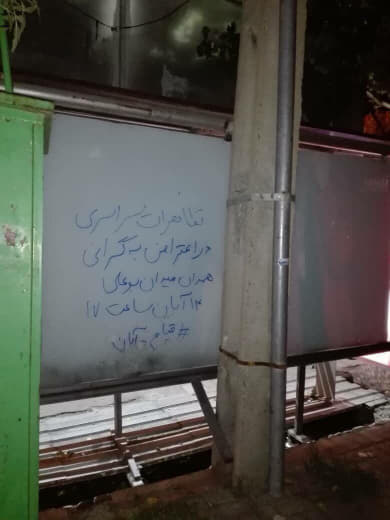 تظاهرات سراسری
در اعتراض به گرانی
همدان میدان بوعلی
۱۴ آبان ساعت ۱۷
# قیام_آبان